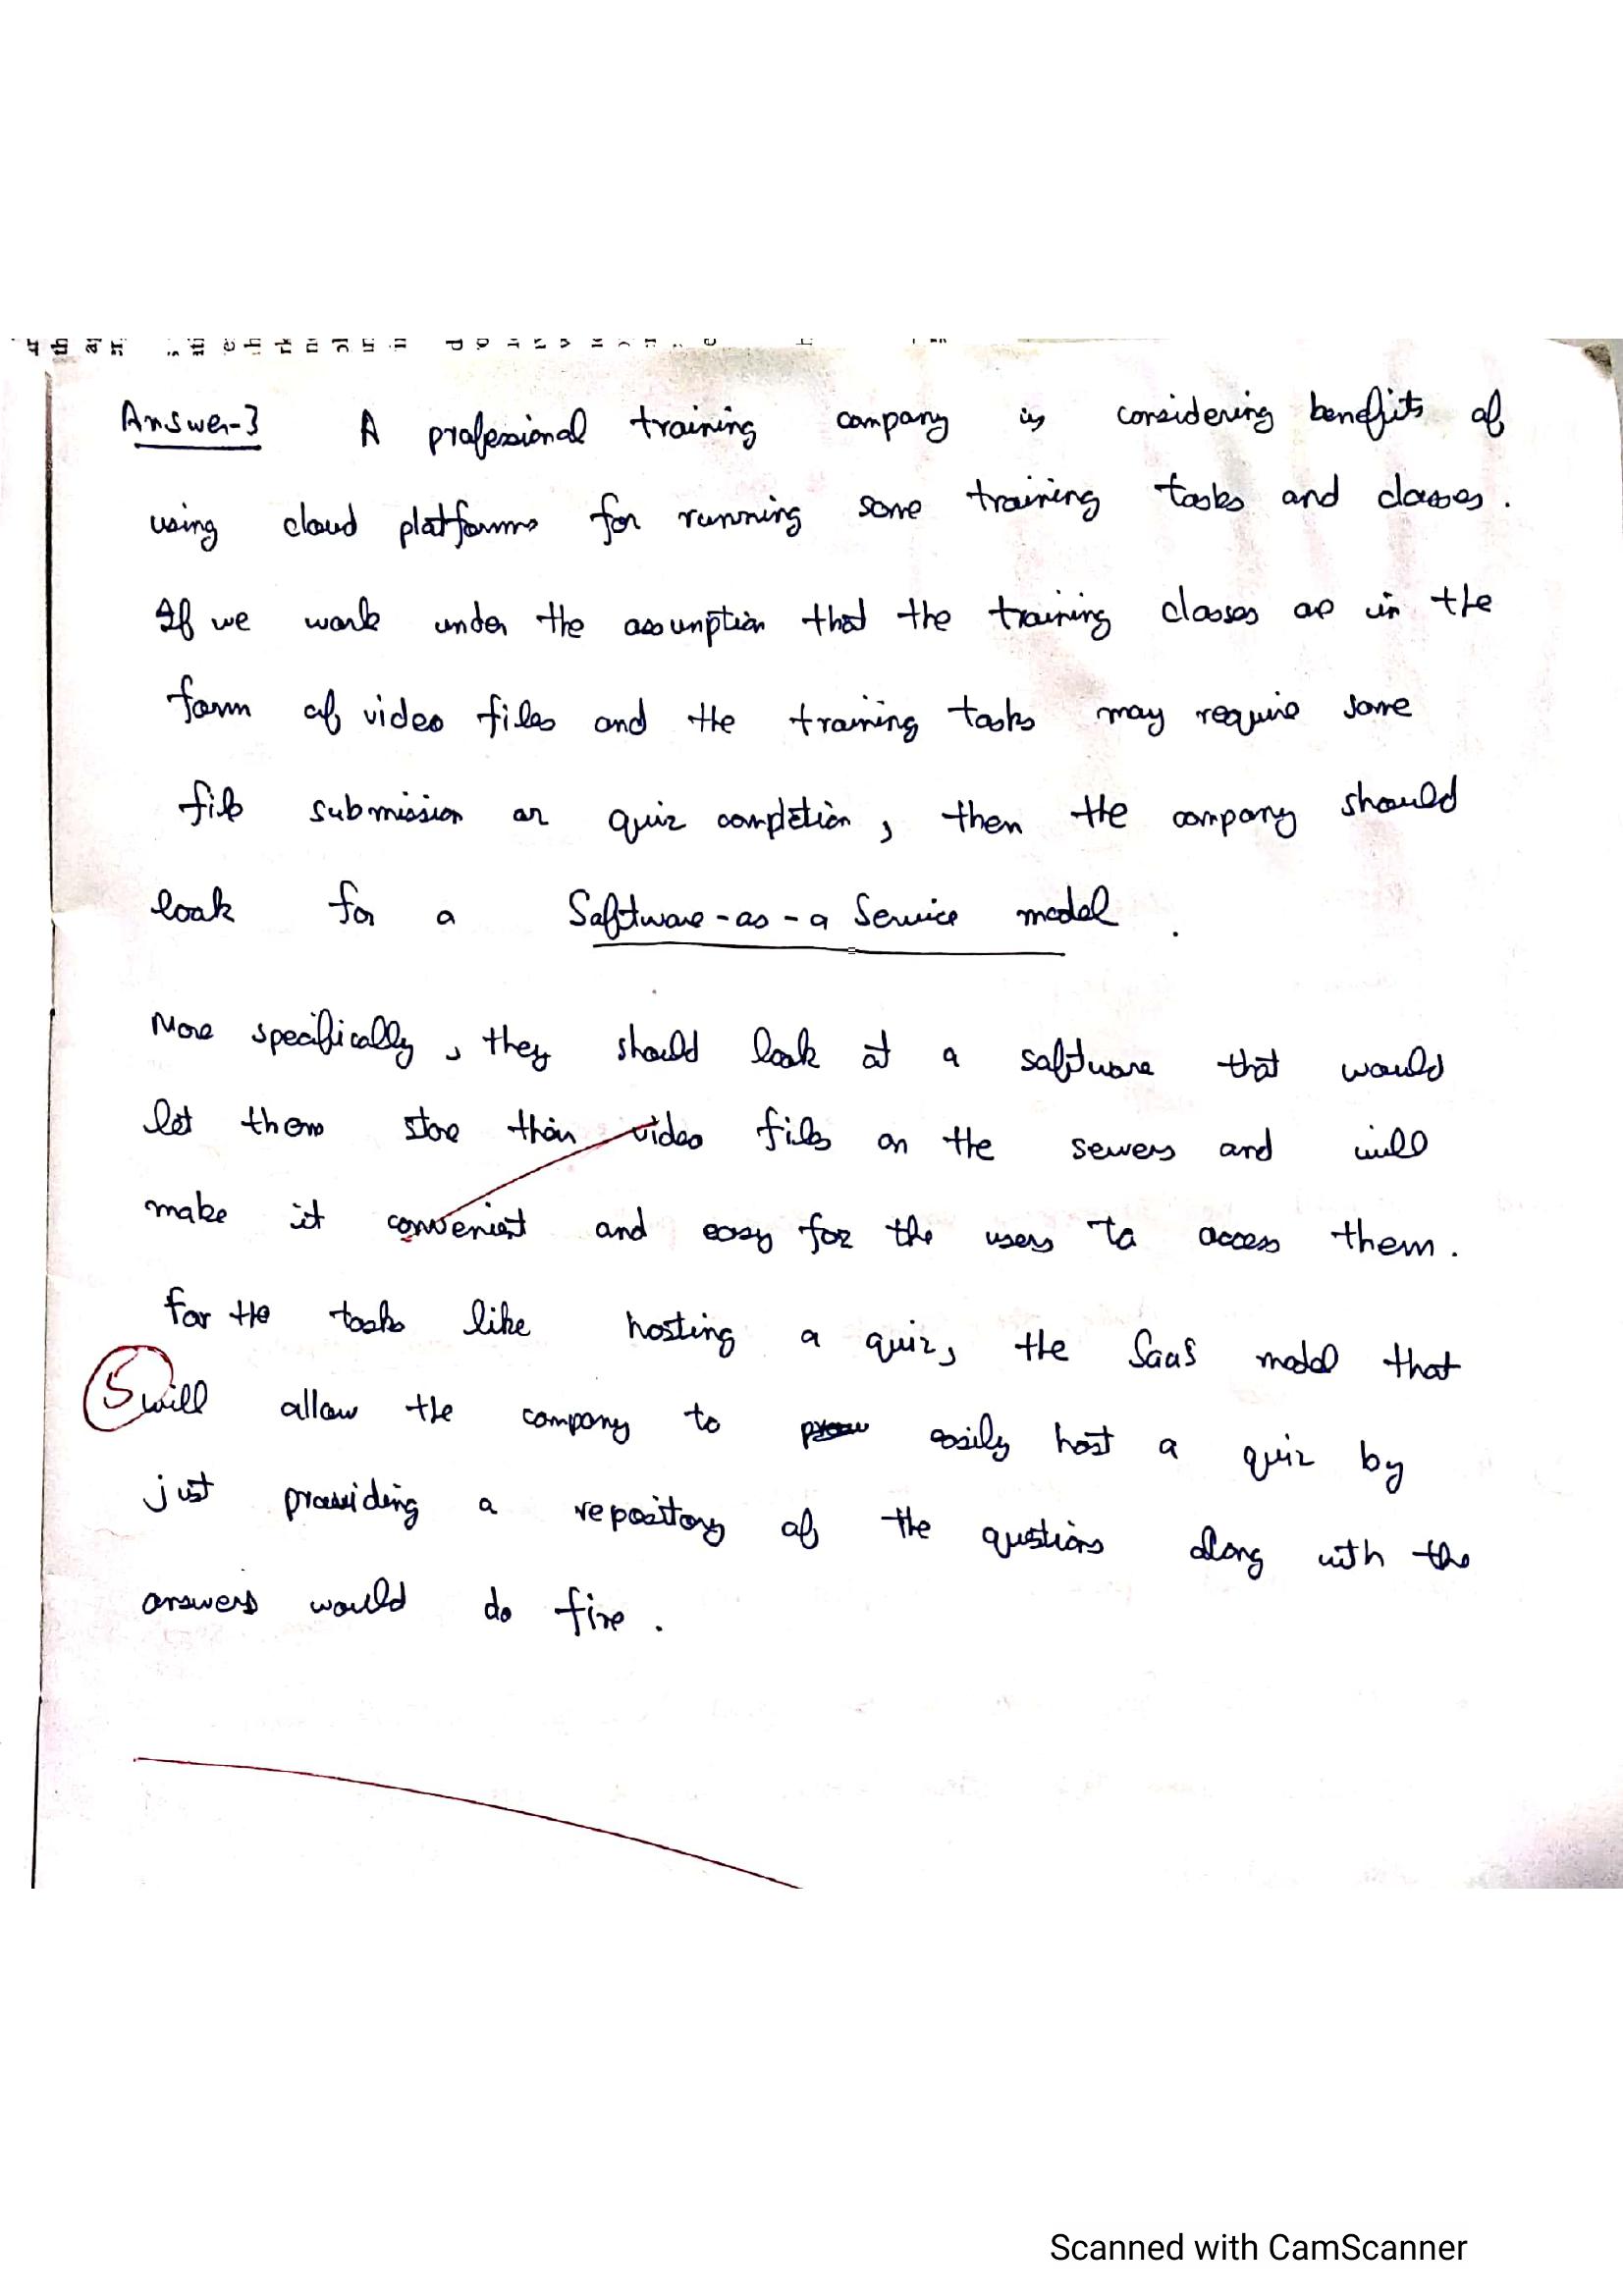 Answer-3 A professional training company is considering benefits of
using cloud platforms for running some training tasks and classes.
If we work under the assumption that the training classes are in the
form of video files and the training tasks may require some
file submission or quiz completion, then the company should
look for a Software-as-a Service model.
More specifically, they should look at a software that would
let them store their video files on the servers and will
make it convenient and easy for the users to access them.
For the tasks like hosting a quiz, the SaaS model that
5 will allow the company to easily host a quiz by
just providing a repository of the questions along with the
answers would do fine.
Scanned with CamScanner